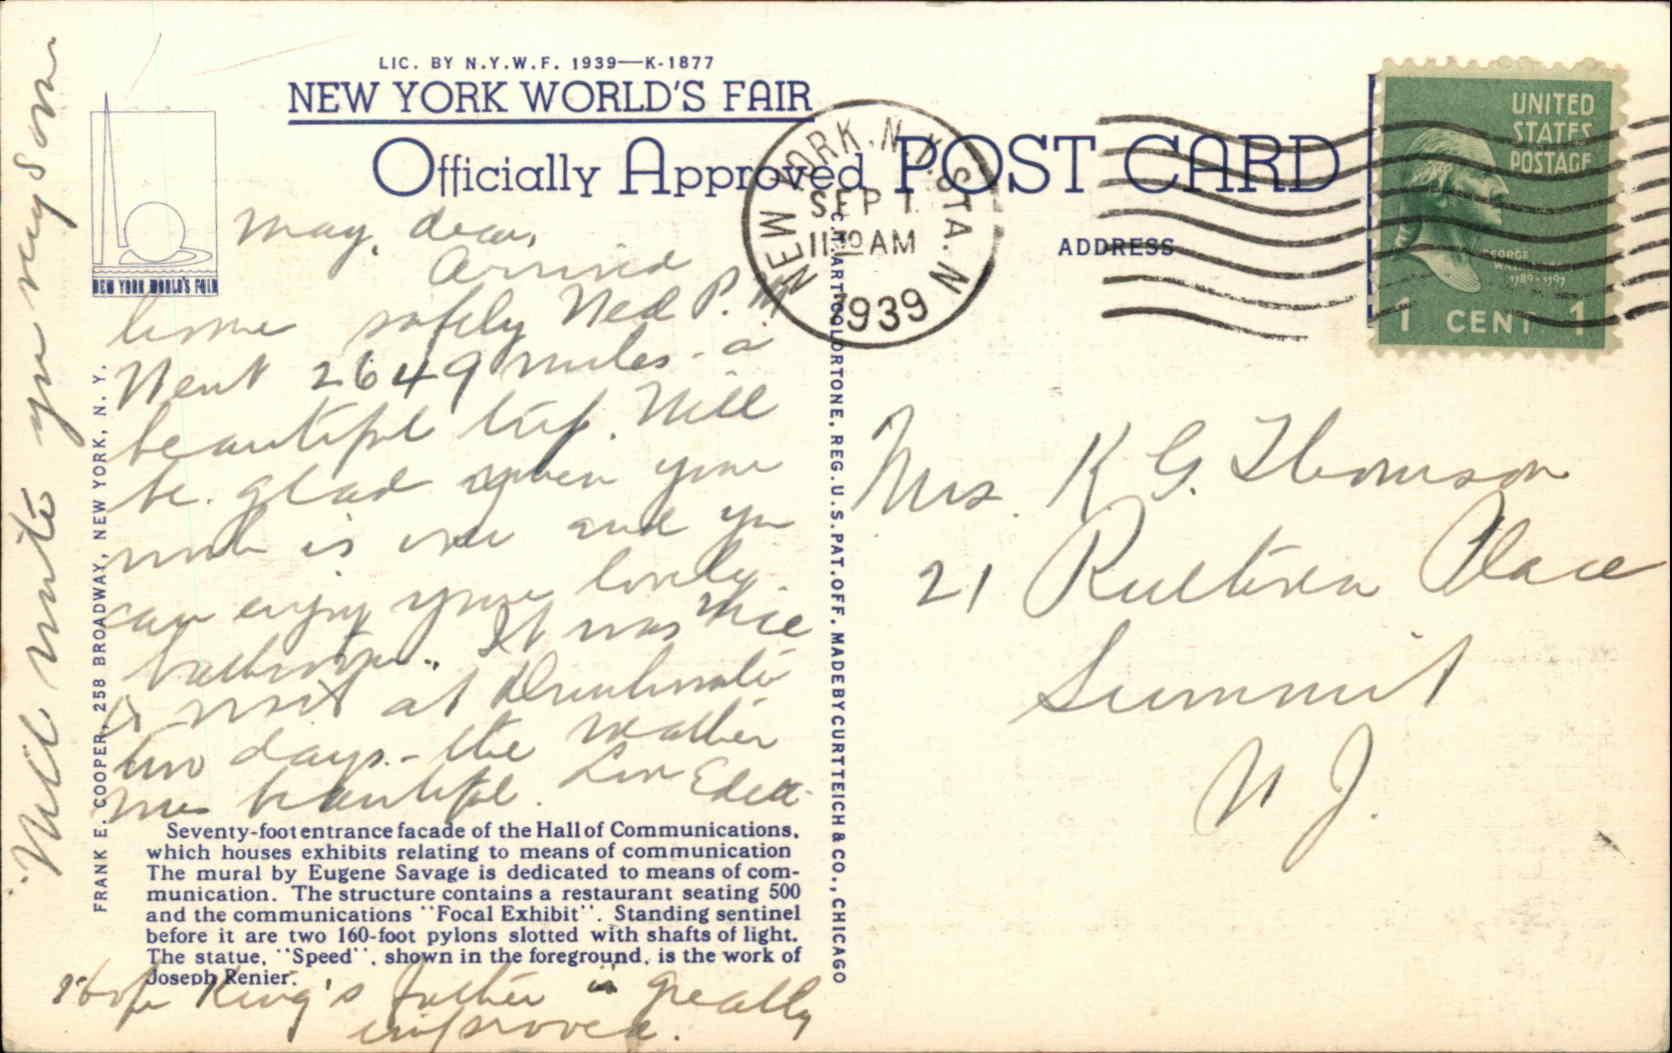 LIC. BY N.Y.W.F. 1939—K-1877
NEW YORK WORLD'S FAIR
Officially Approved POST CARD
NEW YORK WORLD'S FAIR
NEW YORK, N.Y. STA. N
SEP 1
11 AM
1939
UNITED
STATES
POSTAGE
GEORGE
1789-1797
1 CENT 1
ADDRESS
May, dear,
Arrived
home safely Wed P.M.
Went 2649 miles - a
beautiful trip. Will
be glad when your
work is over and you
can enjoy your lovely
bathroom. It was nice
to visit at
two days - the weather
was beautiful. Love Edith
Will write you very soon
Hope King's father is greatly
improved.
Mrs. K G. Thomson
21 Ruthven Place
Summit
N J.
FRANK E. COOPER, 258 BROADWAY, NEW YORK, N. Y.
C.T. ART-COLORTONE, REG. U.S. PAT. OFF. MADE BY CURT TEICH & CO., CHICAGO
Seventy-foot entrance facade of the Hall of Communications,
which houses exhibits relating to means of communication
The mural by Eugene Savage is dedicated to means of com-
munication. The structure contains a restaurant seating 500
and the communications "Focal Exhibit". Standing sentinel
before it are two 160-foot pylons slotted with shafts of light.
The statue, "Speed", shown in the foreground, is the work of
Joseph Renier.